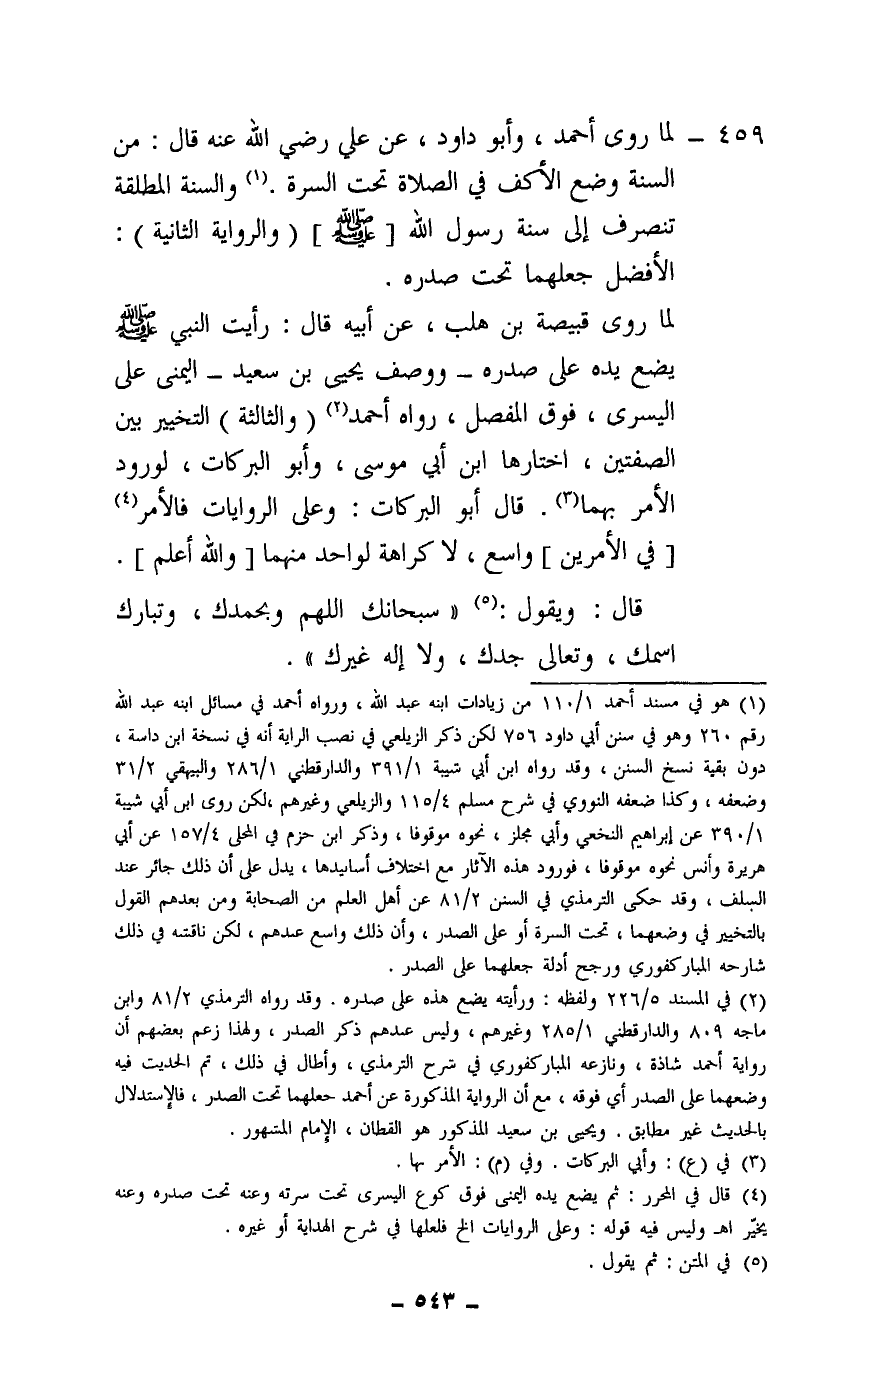 ٤٥٩ ــ لما روى أحمد ، وأبو داود ، عن علي رضي الله عنه قال : من
السنة وضع الأكف في الصلاة تحت السرة .(١) والسنة المطلقة
تنصرف إلى سنة رسول الله [ ﷺ ] ( والرواية الثانية ) :
الأفضل جعلهما تحت صدره .
لما روى قبيصة بن هلب ، عن أبيه قال : رأيت النبي ﷺ
يضع يده على صدره ــ ووصف يحيى بن سعيد ــ اليمنى على
اليسرى ، فوق المفصل ، رواه أحمد(٢) ( والثالثة ) التخيير بين
الصفتين ، اختارها ابن أبي موسى ، وأبو البركات ، لورود
الأمر بهما(٣) . قال أبو البركات : وعلى الروايات فالأمر(٤)
[ في الأمرين ] واسع ، لا كراهة لواحد منهما [ والله أعلم ] .
قال : ويقول :(٥) « سبحانك اللهم وبحمدك ، وتبارك
اسمك ، وتعالى جدك ، ولا إله غيرك » .
(١) هو في مسند أحمد ١١٠/١ من زيادات ابنه عبد الله ، ورواه أحمد في مسائل ابنه عبد الله
رقم ٢٦٠ وهو في سنن أبي داود ٧٥٦ لكن ذكر الزيلعي في نصب الراية أنه في نسخة ابن داسة ،
دون بقية نسخ السنن ، وقد رواه ابن أبي شيبة ٣٩١/١ والدارقطني ٢٨٦/١ والبيهقي ٣١/٢
وضعفه ، وكذا ضعفه النووي في شرح مسلم ١١٥/٤ والزيلعي وغيرهم ،لكن روى ابن أبي شيبة
٣٩٠/١ عن إبراهيم النخعي وأبي مجلز ، نحوه موقوفا ، وذكر ابن حزم في المحلى ١٥٧/٤ عن أبي
هريرة وأنس نحوه موقوفا ، فورود هذه الآثار مع اختلاف أسانيدها ، يدل على أن ذلك جائر عند
السلف ، وقد حكى الترمذي في السنن ٨١/٢ عن أهل العلم من الصحابة ومن بعدهم القول
بالتخيير في وضعهما ، تحت السرة أو على الصدر ، وأن ذلك واسع عندهم ، لكن ناقشه في ذلك
شارحه المباركفوري ورجح أدلة جعلهما على الصدر .
(٢) في المسند ٢٢٦/٥ ولفظه : ورأيته يضع هذه على صدره . وقد رواه الترمذي ٨١/٢ وابن
ماجه ٨٠٩ والدارقطني ٢٨٥/١ وغيرهم ، وليس عندهم ذكر الصدر ، ولهذا زعم بعضهم أن
رواية أحمد شاذة ، ونازعه المباركفوري في شرح الترمذي ، وأطال في ذلك ، ثم الحديث فيه
وضعهما على الصدر أي فوقه ، مع أن الرواية المذكورة عن أحمد جعلهما تحت الصدر ، فالإستدلال
بالحديث غير مطابق . ويحيى بن سعيد المذكور هو القطان ، الإمام المشهور .
(٣) في (ع) : وأبي البركات . وفي (م) : الأمر بها .
(٤) قال في المحرر : ثم يضع يده اليمنى فوق كوع اليسرى تحت سرته وعنه تحت صدره وعنه
يخيّر اهـ وليس فيه قوله : وعلى الروايات الخ فلعلها في شرح الهداية أو غيره .
(٥) في المتن : ثم يقول .
ــ ٥٤٣ ــ